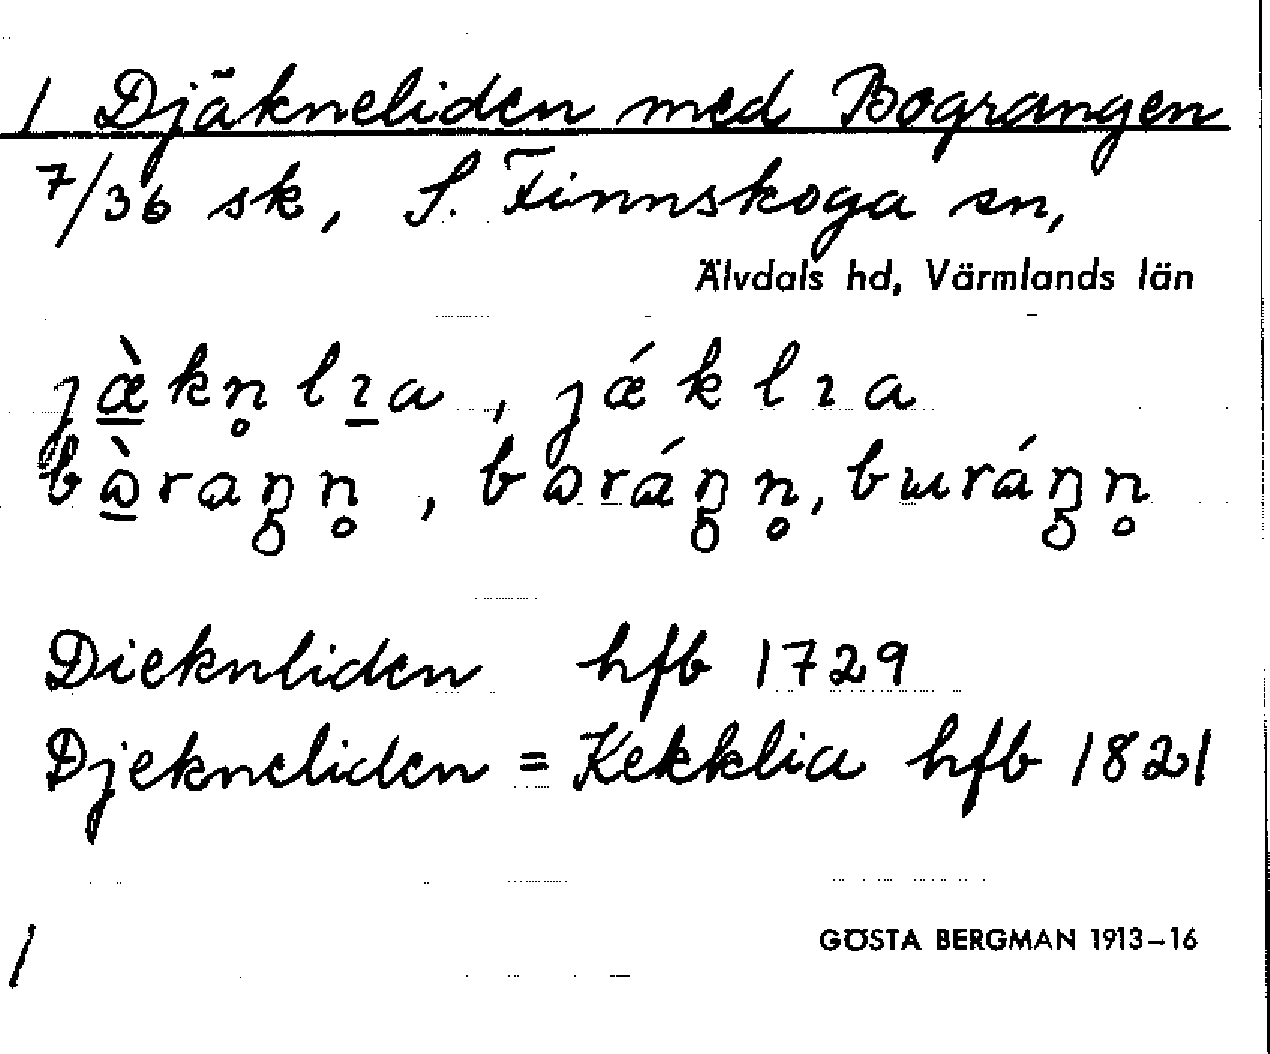 1 Djäkneliden med Bograngen
7/36 sk, S. Finnskoga sn,
Älvdals hd, Värmlands län
jæ̱̀kn̥lı̱a, jǽklıa
bɷ̱̀raŋn̥, bɷráŋn̥, buráŋn̥
Dieknliden hfb 1729
Djekneliden = Kekklia hfb 1821
/
GÖSTA BERGMAN 1913–16